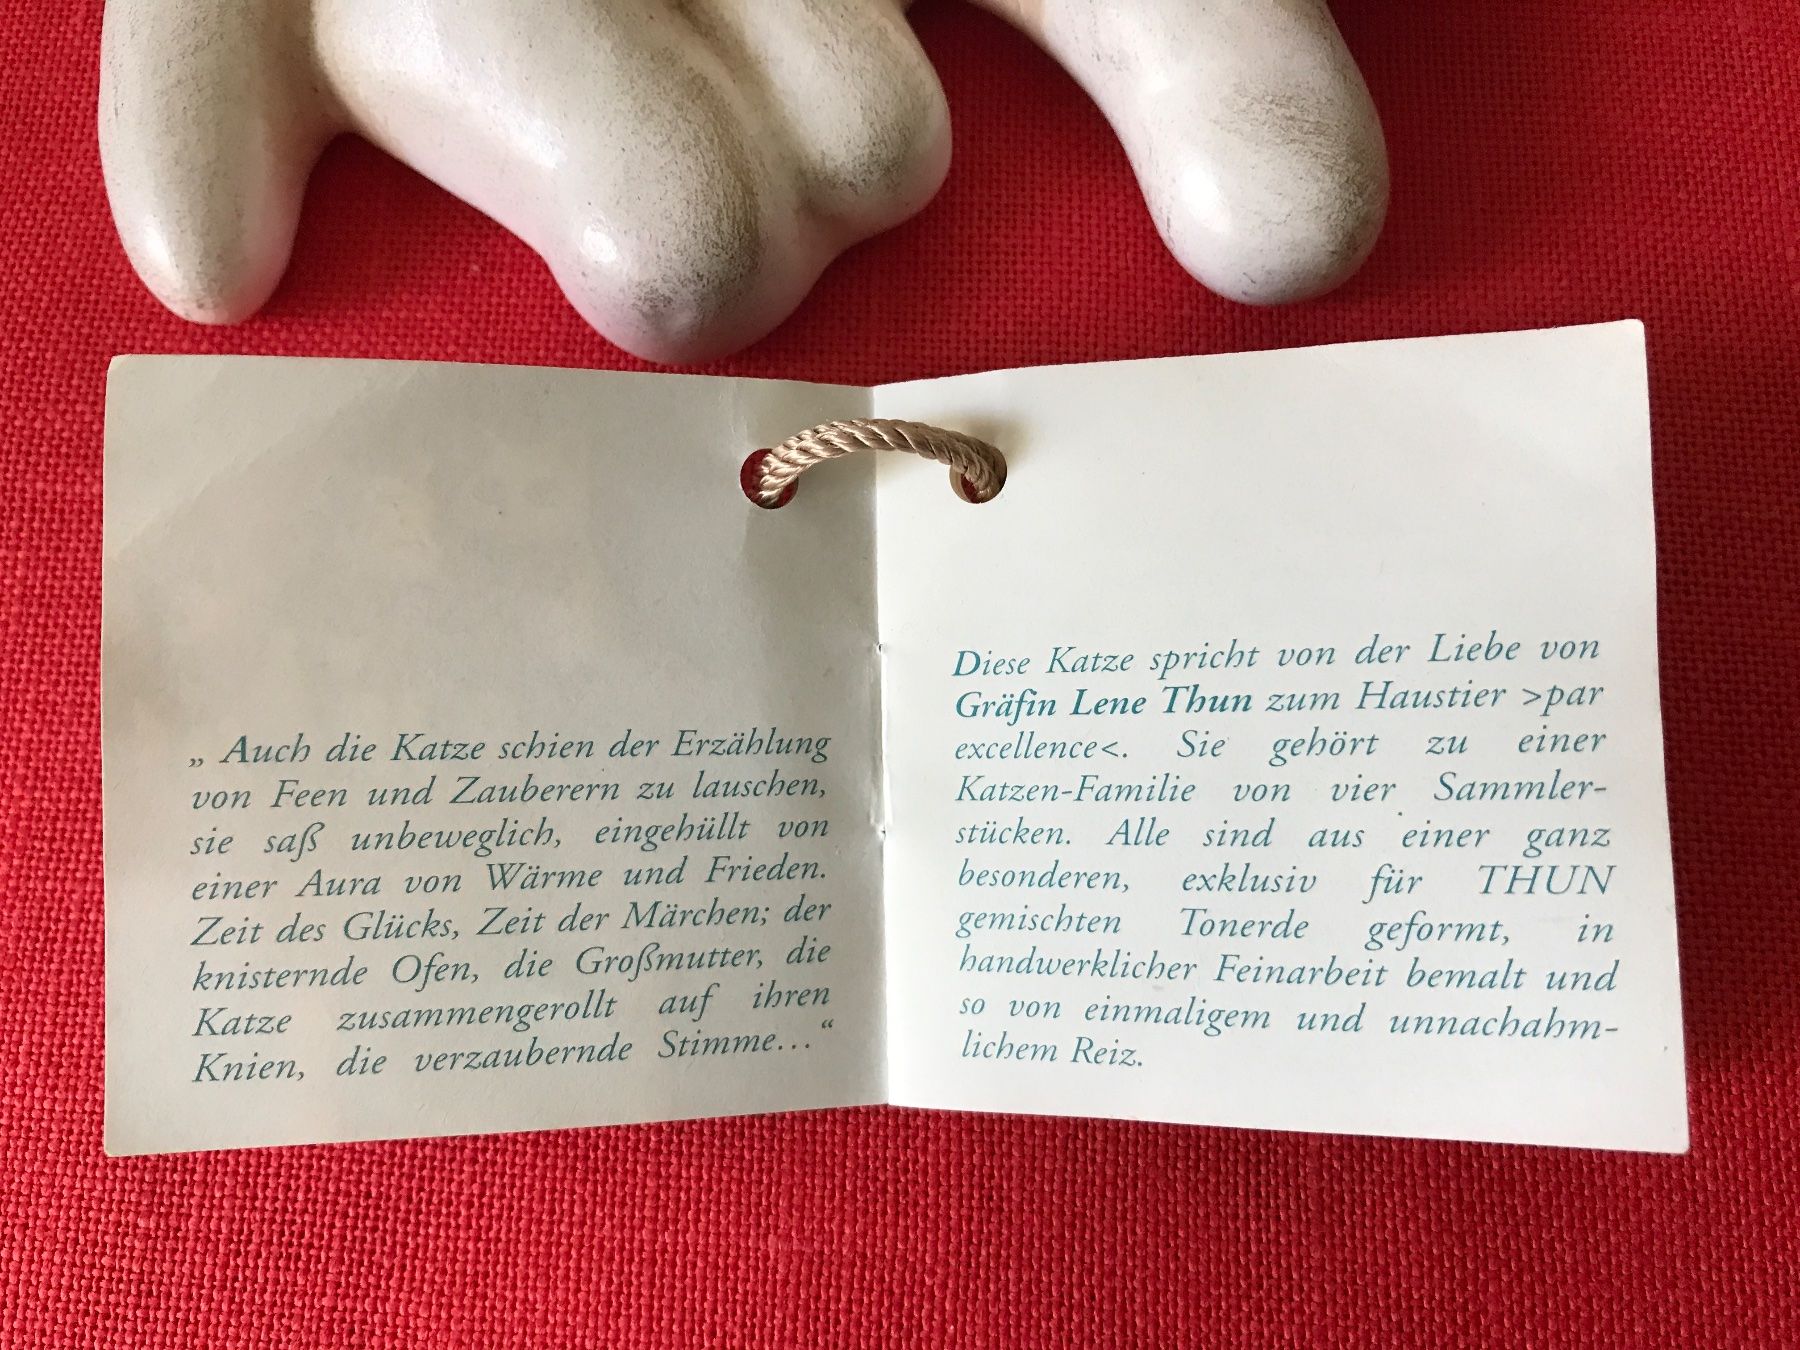 „ Auch die Katze schien der Erzählung
von Feen und Zauberern zu lauschen,
sie saß unbeweglich, eingehüllt von
einer Aura von Wärme und Frieden.
Zeit des Glücks, Zeit der Märchen; der
knisternde Ofen, die Großmutter, die
Katze zusammengerollt auf ihren
Knien, die verzaubernde Stimme...“
Diese Katze spricht von der Liebe von
Gräfin Lene Thun zum Haustier >par
excellence<. Sie gehört zu einer
Katzen-Familie von vier Sammler-
stücken. Alle sind aus einer ganz
besonderen, exklusiv für THUN
gemischten Tonerde geformt, in
handwerklicher Feinarbeit bemalt und
so von einmaligem und unnachahm-
lichem Reiz.